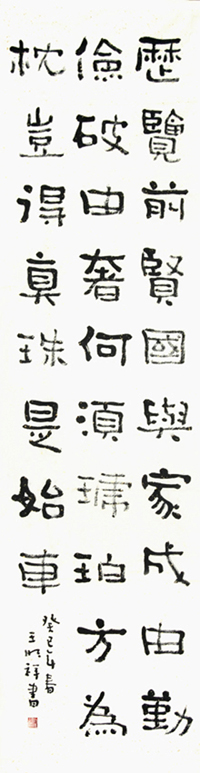 歷覽前賢國與家成由勤
儉破由奢何須琥珀方為
枕豈得真珠是始車
癸巳年春
王明祥書